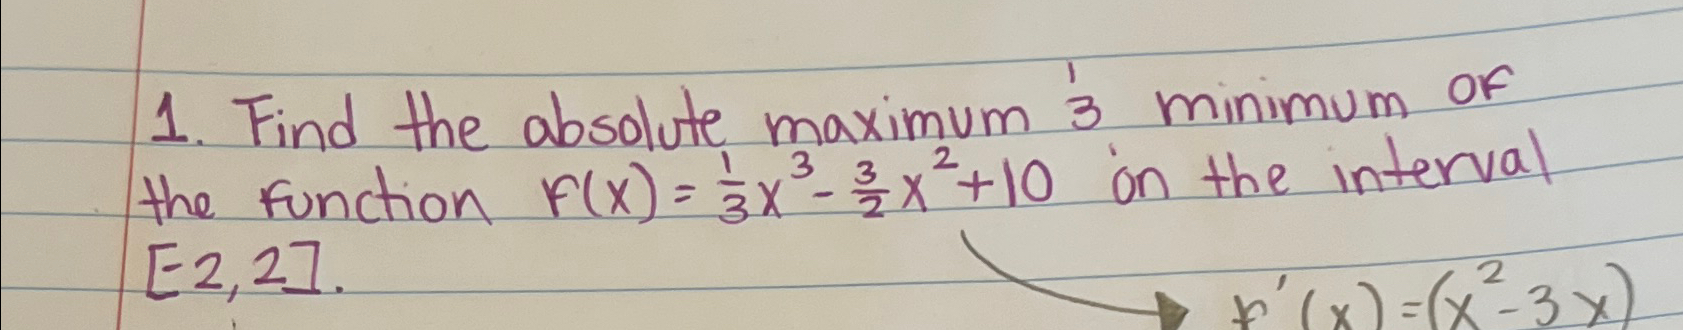 1. Find the absolute maximum & minimum of
the function f(x) = 1/3 x³ - 3/2 x² + 10 on the interval
[-2, 2].
f'(x) = (x² - 3x)